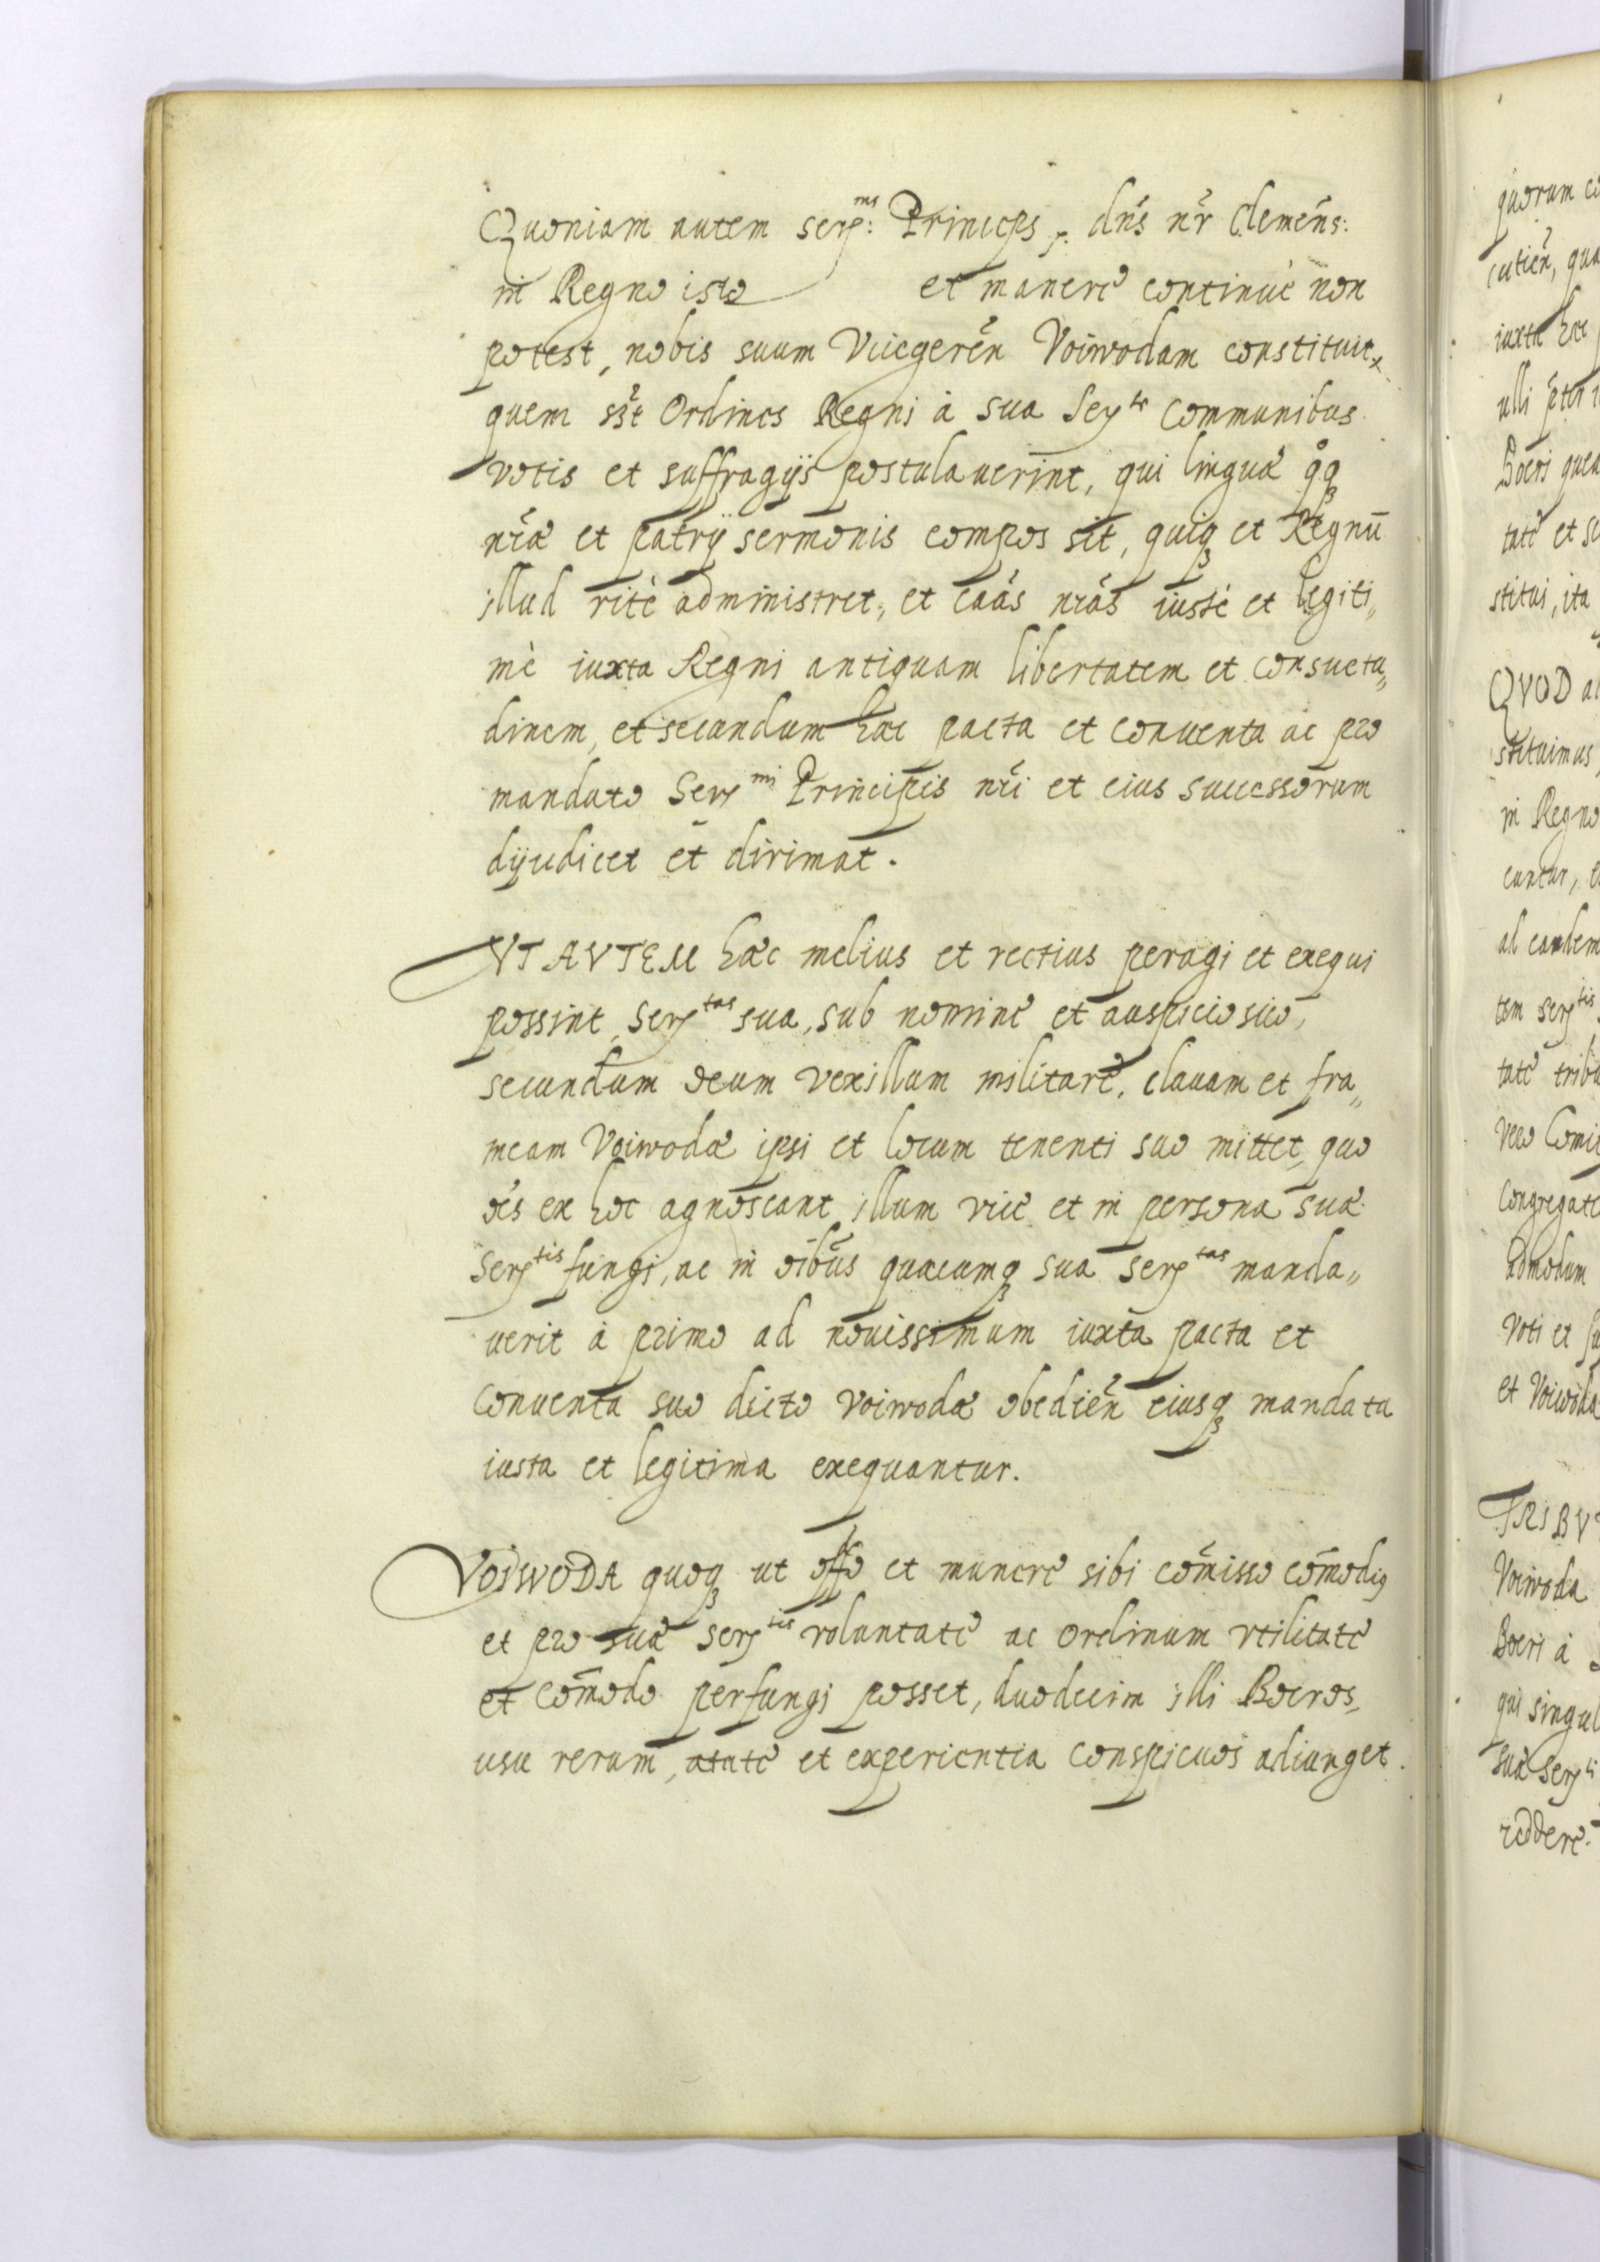 Quoniam autem Ser: ms Princeps p. dñs nr̃ Clemẽns:
in Regno isto et manere continuè non
potest, nobis suum Vicegerẽn Voiwodam constituit
quem Ordines Regni à sua Ser te Communibus
votis et suffragijs postulauerint, qui linguæ qq
nr̃æ et patrij sermonis compos sit, quiq et Regnū
illud ritè administret, et cãas nr̃as iustè et legiti„
mè iuxta Regni antiquam libertatem et Consuetu„
dinem, et secundum hæc pacta et conuenta ac pro
mandato Ser mi Principis nr̃i et eius successorum
dijudicet et dirimat.
VT AVTEM hæc melius et rectius peragi et exequi
possint, Ser tas sua, sub nomine et auspicio suo,
secundum deum vexillum militare, clauam et fra„
meam Voiwodæ ipsi et locum tenenti suo mittet, quo
ões ex hoc agnoscant, illum vice et in persona suæ
Ser tis fungi, ac in õibus quæcumq sua Ser tas manda„
uerit à primo ad nouissimum iuxta pacta et
Conuenta suo dicto Voiwodæ obediẽn eiusq mandata
iusta et legitima exequantur.
VOIWODA quoq ut offo et munere sibi cõmisso cõmodiq
et pro suæ Ser tis voluntate ac Ordinum vtilitate
et Cõmodo perfungi posset, duodecim illi Boeros,
usu rerum, ætate et experientia Conspicuos adiunget.
quorum
cutiẽn,
iuxta hæc
ulli
Boeri
tate et
stitui, ita
QVOD
stituimus,
in Regno
cantur,
ad eandem
tem Ser tis
tate
Vero
Congregat
admodum
Voti et
et Voiwoda
TRIBV
Voiwoda
Boeri à
qui
suæ Ser
reddere.